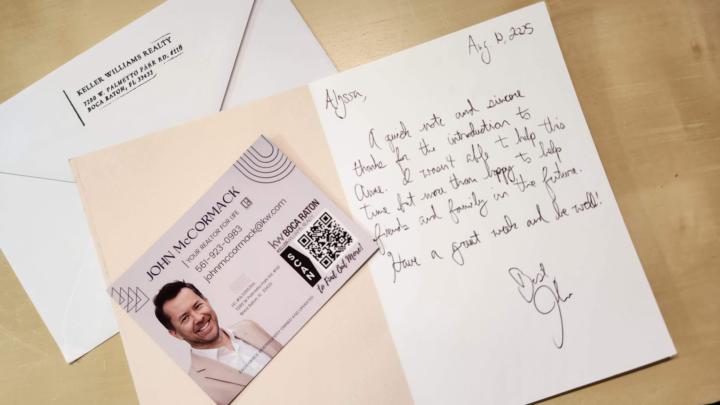 KELLER WILLIAMS REALTY
7280 W. PALMETTO PARK RD, #118
BOCA RATON, FL 33433
JOHN McCORMACK
YOUR REALTOR FOR LIFE
561-923-0983
johnmccormack@kw.com
kw BOCA RATON
SCAN
To Find Out More!
Alyssa,
A quick note and sincere
thanks for the introduction to
I wasn't able to help this
time but more than happy to help
friends and family in the future.
Have a great week and be well!
Best,
John